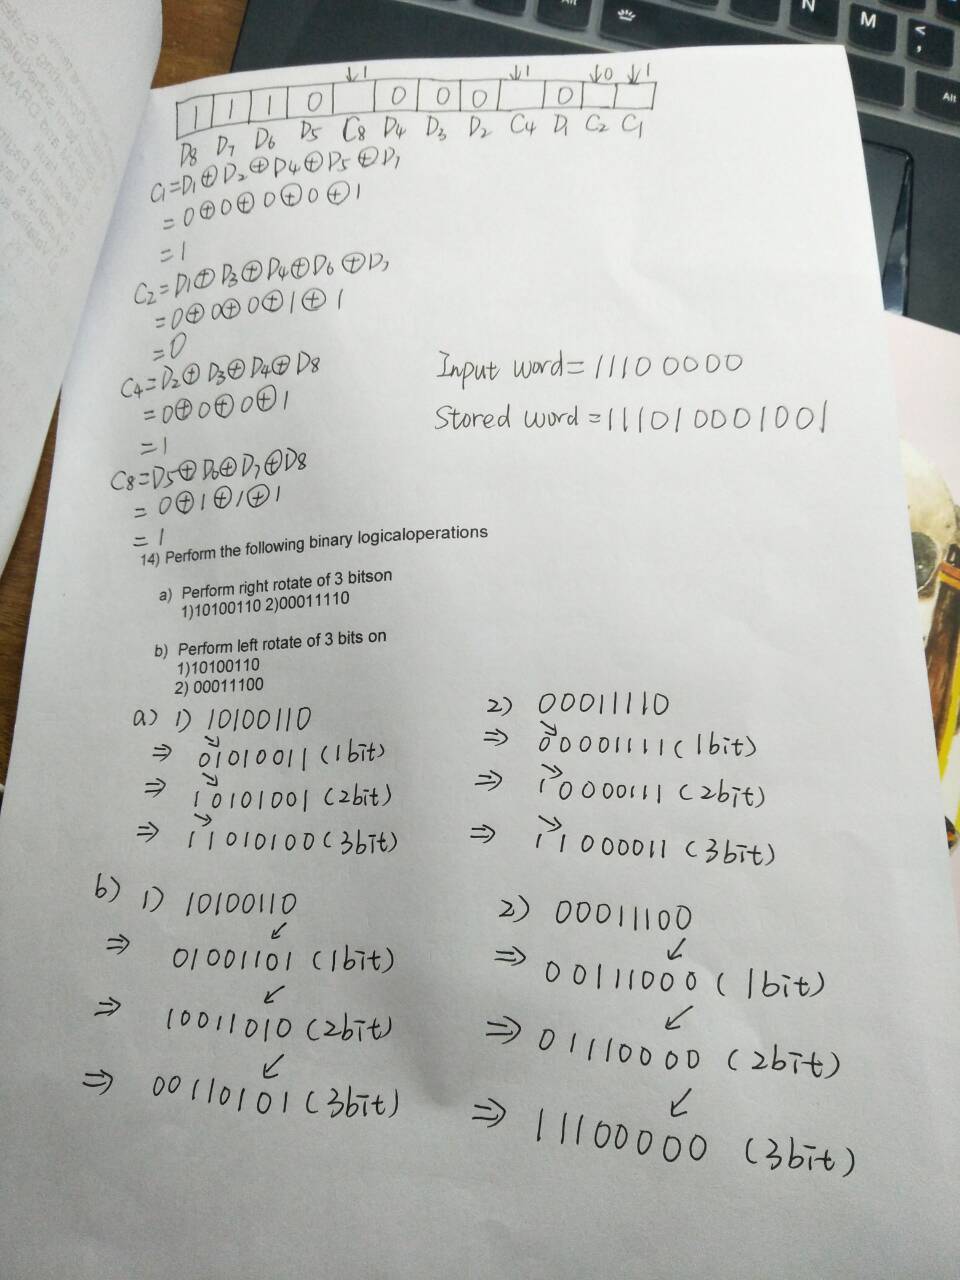 N M < ,
Alt
↓1 ↓1 ↓0 ↓1
1 1 1 0 0 0 0 0
D8 D7 D6 D5 C8 D4 D3 D2 C4 D1 C2 C1
C1=D1⊕D2⊕D4⊕D5⊕D7
=0⊕0⊕0⊕0⊕1
=1
C2=D1⊕D3⊕D4⊕D6⊕D7
=0⊕0⊕0⊕1⊕1
=0
C4=D2⊕D3⊕D4⊕D8
=0⊕0⊕0⊕1
=1
Input word=11100000
Stored word=111010001001
C8=D5⊕D6⊕D7⊕D8
=0⊕1⊕1⊕1
=1
14) Perform the following binary logicaloperations
a) Perform right rotate of 3 bitson
1)10100110 2)00011110
b) Perform left rotate of 3 bits on
1)10100110
2) 00011100
a) 1) 10100110
⇒ 01010011 (1bit)
⇒ 10101001 (2bit)
⇒ 11010100 (3bit)
2) 00011110
⇒ 00001111 (1bit)
⇒ 10000111 (2bit)
⇒ 11000011 (3bit)
b) 1) 10100110
⇒ 01001101 (1bit)
⇒ 10011010 (2bit)
⇒ 00110101 (3bit)
2) 00011100
⇒ 00111000 (1bit)
⇒ 01110000 (2bit)
⇒ 11100000 (3bit)